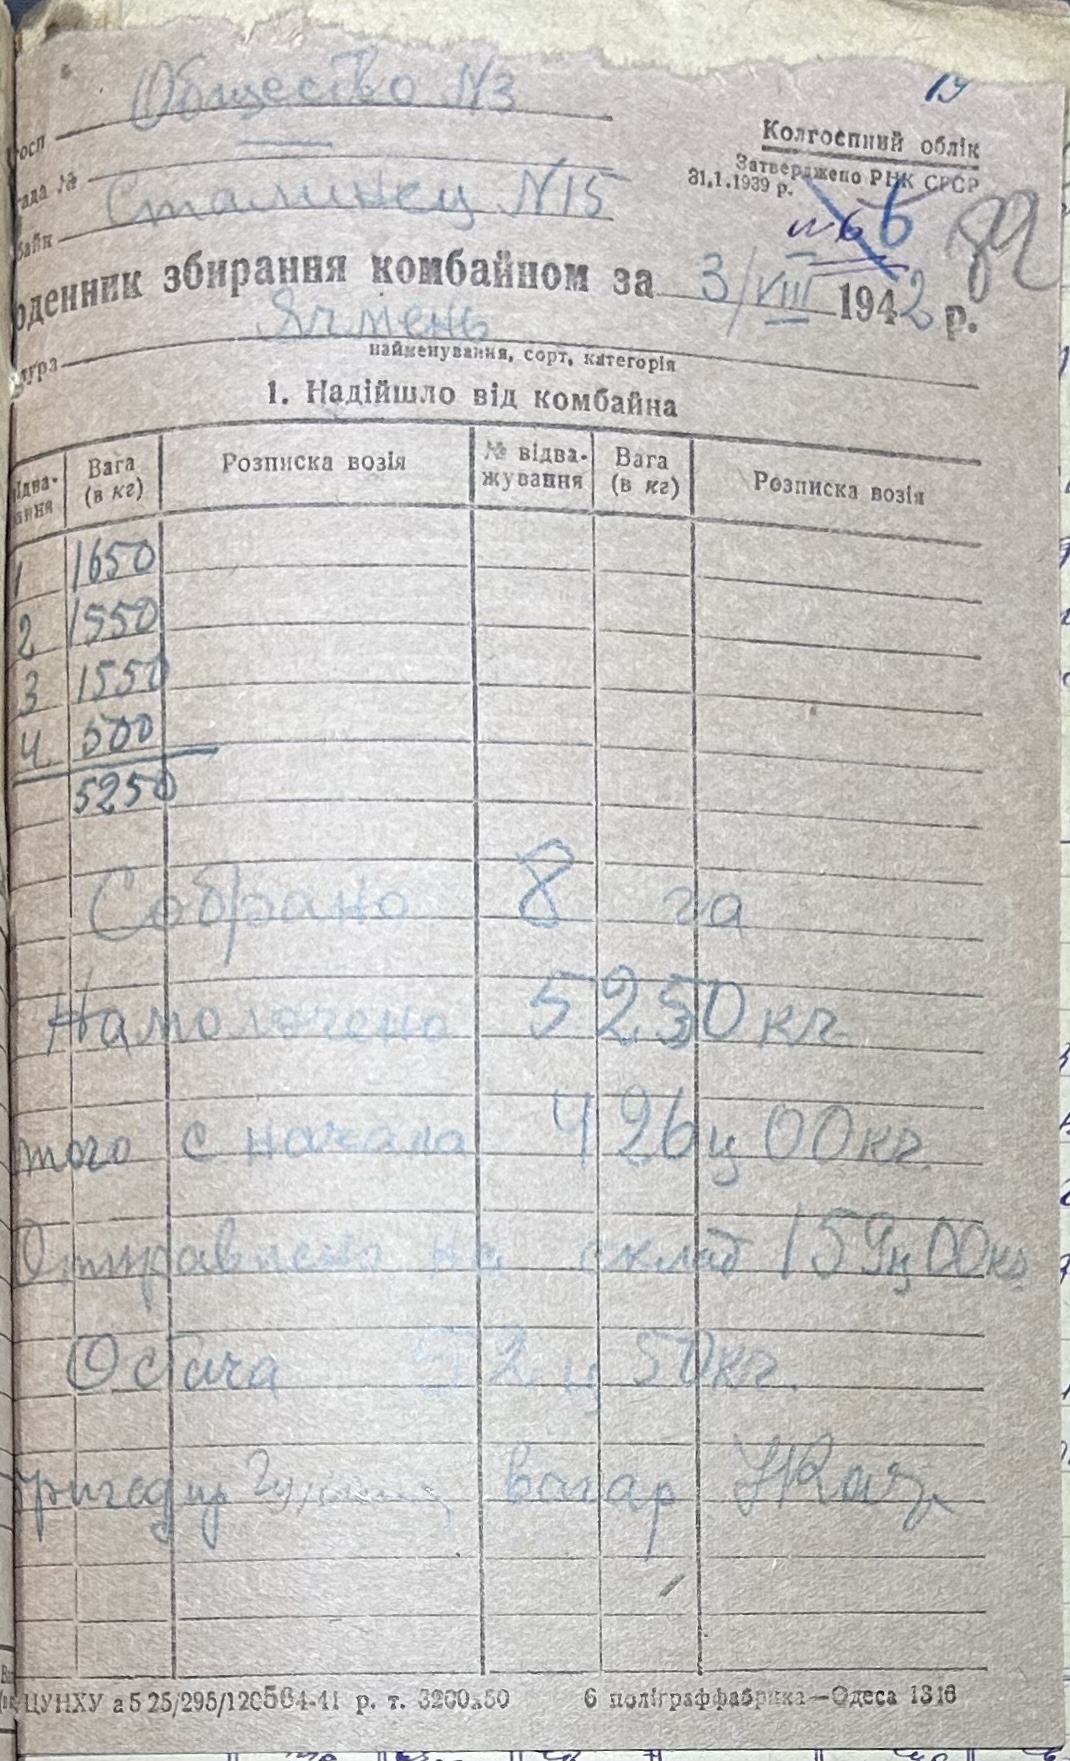 19
Общество №3
Колгоспний облік
Затверджено РНК СРСР
31.1.1939 р.
Сталинец N15
№6 6
82
оденник збирання комбайном за 3/VIII 1942 р.
Ячмень
найменування, сорт, категорія
1. Надійшло від комбайна
Вага (в кг) Розписка возія № відва-жування Вага (в кг) Розписка возія
1 1650
2 1550
3 1550
4 500
5250
Собрано 8 га
Намолочено 5250 кг
того с начала 426ц 00кг.
Отправлено на склад 159ц00кг
Остача 52ц 50кг.
бригадир вагар
ЦУНХУ а5 25/295/120564-41 р. т. 3200х50 6 поліграффабрика—Одеса 1316